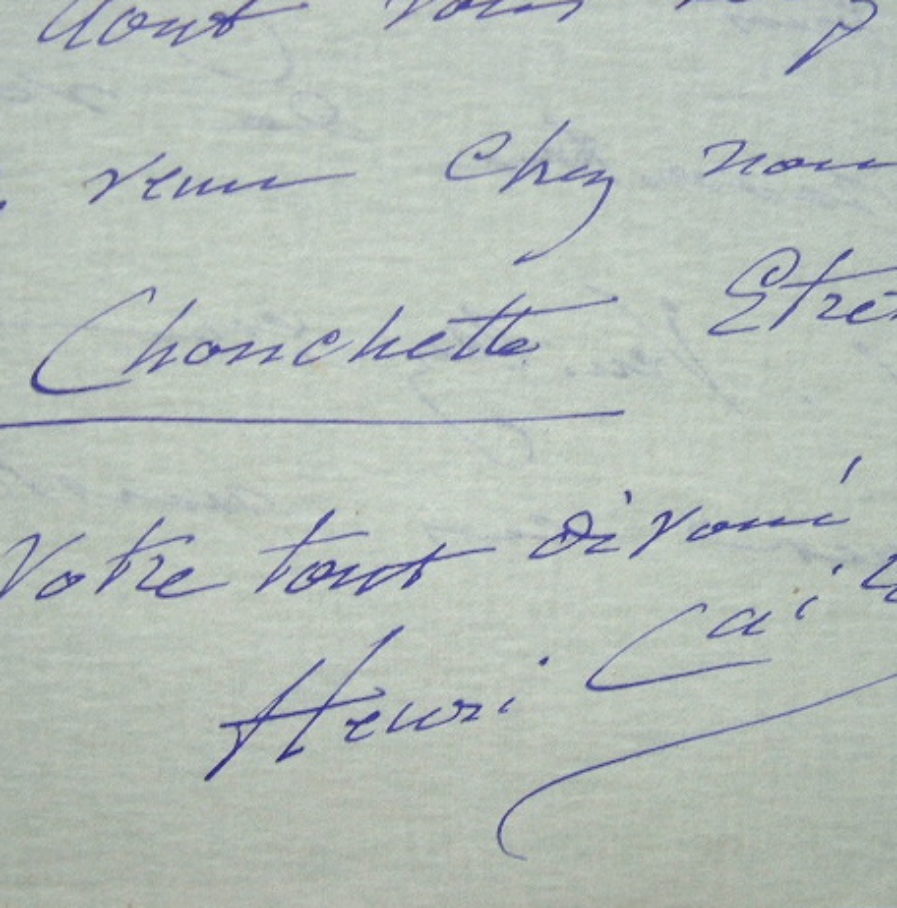 dont vous
venu chez nou
Chonchette Etre
Votre tout dévoué
Henri Cai